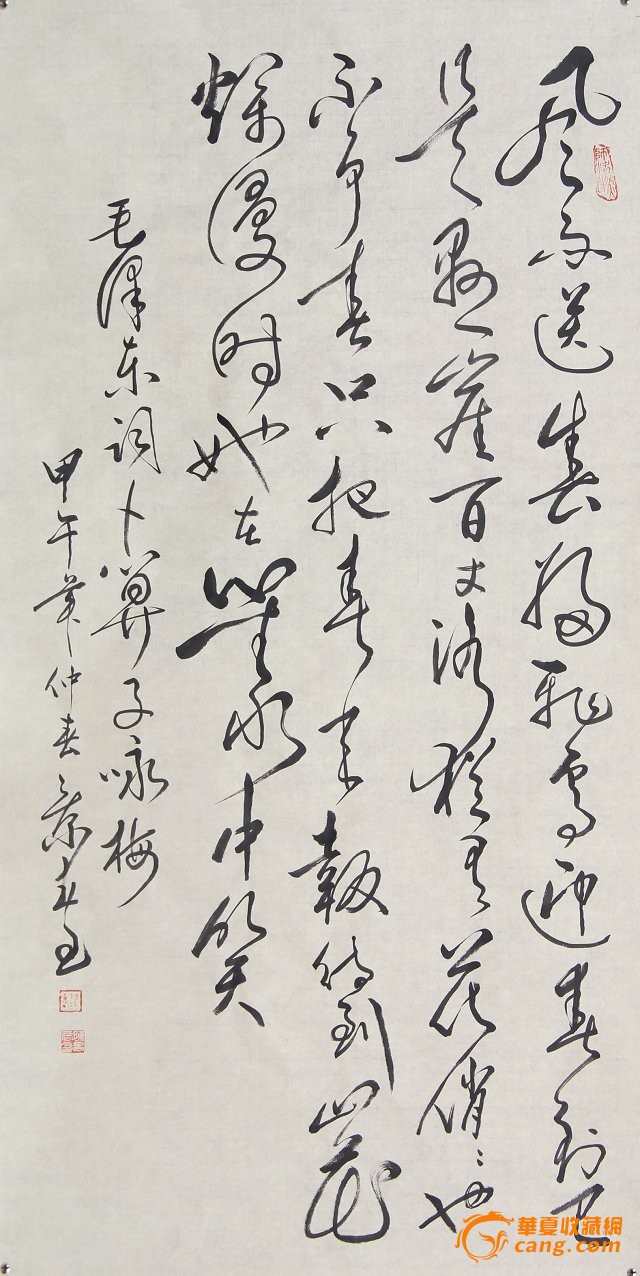 风雨送春归飞雪迎春到已
是悬崖百丈冰猶有花俏〻也
不争春只把春来報待到山花
爛漫时她在叢中笑
毛泽东词卜算子咏梅
甲午年仲春
華夏收藏網
cang.com